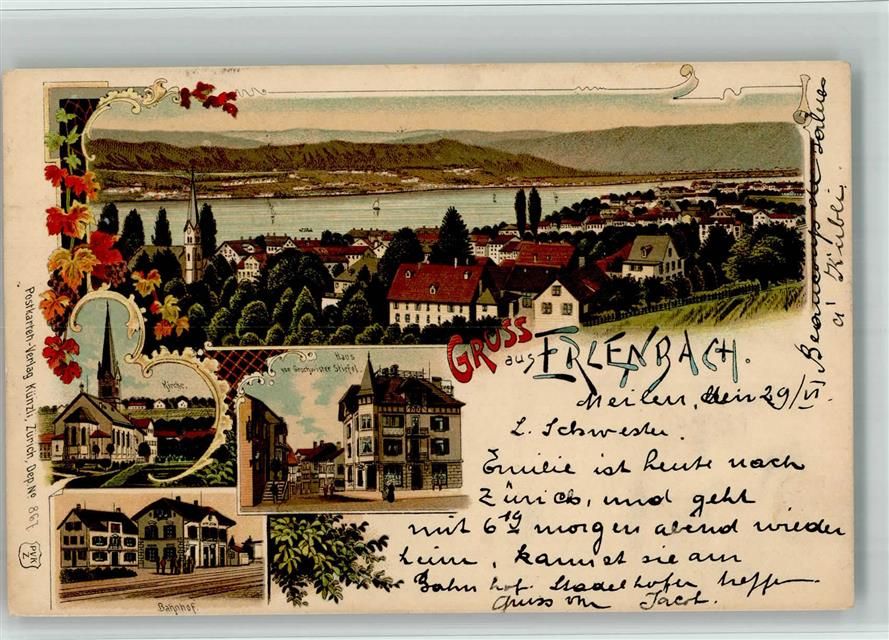 GRUSS aus ERLENBACH.
Kirche.
Haus
von Geschwister Stiefel.
Bahnhof.
Postkarten-Verlag Künzli, Zürich, Dep. No 867
PVK
Z
Meilen, den 29/VI
L. Schwester.
Emilie ist heute nach
Zürich, und geht
mit 6 19 morgen abend wieder
heim, kannst sie am
Bahnhof Stadelhofen treffen
Gruss von Jacob.
Beaucoup de